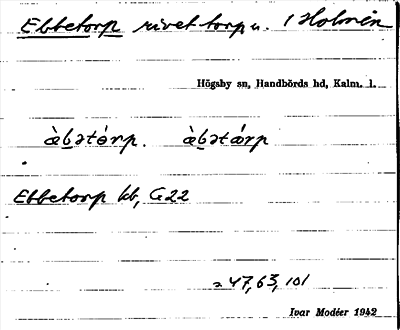 Ebbetorp rivet torp u. Holmen
Högsby sn, Handbörds hd, Kalm. l.
à̀bətórp. àbətárp
Ebbetorp kb, G22
= 47, 63, 101
Ivar Modéer 1942